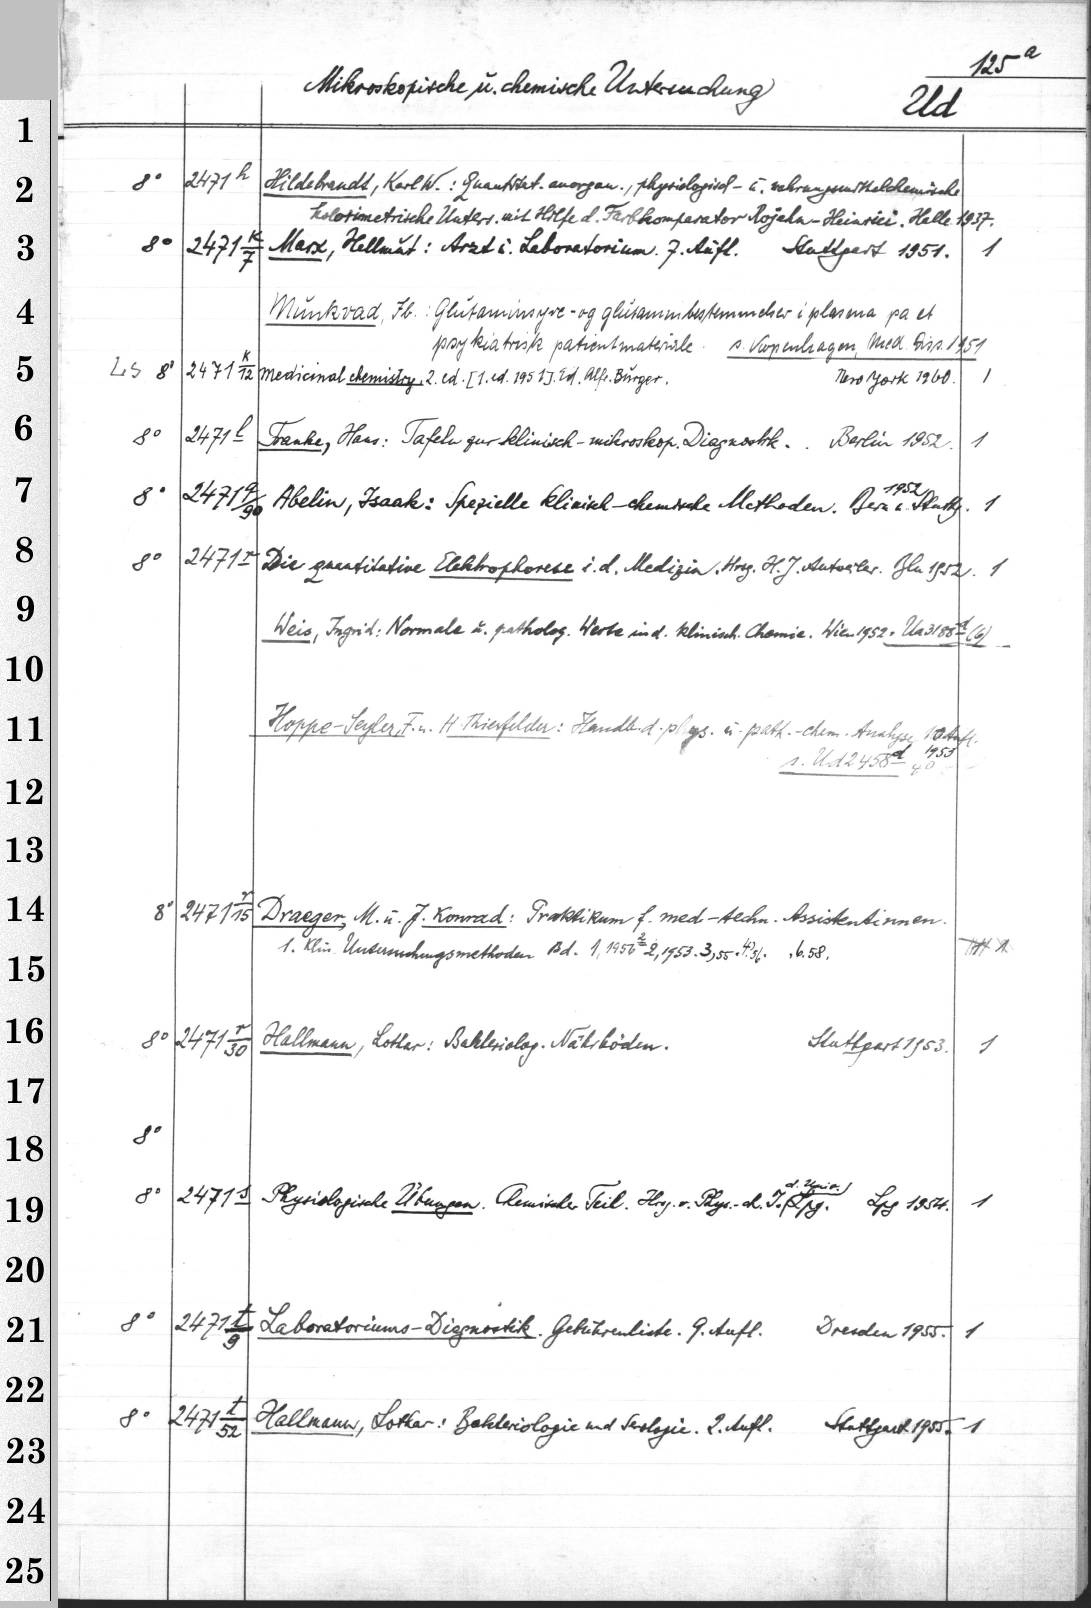 125a
Mikroskopische u. chemische Untersuchung
Ud
1
2
8° 2471 h Hildebrandt, Karl W.: Quantitat. anorgan., physiologisch- u. nahrungsmittelchemische
kolorimetrische Unters. mit Hilfe d. Farbkomparator Rojahn-Heinrici. Halle 1937.
3
8° 2471 k/7 Marx, Hellmut: Arzt i. Laboratorium. 7. Aufl. Stuttgart 1951. 1
4
Munkvad, Ib.: Glutaminsyre- og glutaminbestemmelser i plasma pa et
psykiatrisk patientmateriale. s. Kopenhagen, Med. Diss. 1951
5
LS 8° 2471 k/12 medicinal chemistry. 2. ed. [1. ed. 1951]. Ed. Alfr. Burger. New York 1960. 1
6
8° 2471 l Franke, Hans: Tafeln zur klinisch-mikroskop. Diagnostik. Berlin 1952. 1
7
8° 2471 q/90 Abelin, Isaak: Spezielle klinisch-chemische Methoden. Bern u. Stuttg. 1952 1
8
8° 2471 r Die quantitative Elektrophorese i. d. Medizin. Hrsg. H. J. Antweiler. Bln 1952. 1
9
Weis, Ingrid: Normale u. patholog. Werte in d. klinisch. Chemie. Wien 1952. Ua 3188 d (6)
10
11
Hoppe-Seyler, F. u. H. Thierfelder: Handb. d. phys. u. path.-chem. Analyse 10. Aufl.
1953
s. Ud 2458 d/40
12
13
14
8° 2471 r/15 Draeger, M. u. J. Konrad: Praktikum f. med.-techn. Assistentinnen.
1. Klin. Untersuchungsmethoden Bd. 1, 1956 2, 2, 1953. 3, 55. 4, 56. 6. 58.
15
16
8° 2471 r/30 Hallmann, Lothar: Bakteriolog. Nährböden. Stuttgart 1953. 1
17
8°
18
19
8° 2471 s Physiologische Übungen. Chemischer Teil. Hrsg. v. Phys.-ch. I. (d. Univ.) Lpg. Lpg 1954. 1
20
21
8° 2471 t/9 Laboratoriums-Diagnostik. Gebührenliste. 9. Aufl. Dresden 1955. 1
22
8° 2471 t/52 Hallmann, Lothar: Bakteriologie und Serologie. 2. Aufl. Stuttgart 1955. 1
23
24
25